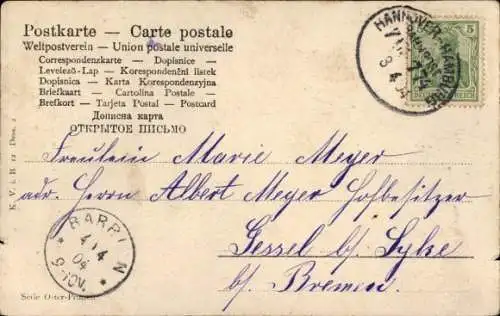 Postkarte — Carte postale
Weltpostverein – Union postale universelle
Correspondenzkarte – Dopisnice –
Levelezö-Lap – Korespondenčni listek
Dopisnica – Karta Korespondencyjna
Briefkaart – Cartolina Postale –
Brefkort – Tarjeta Postal – Postcard
Дописна карта
ОТКРЫТОЕ ПИСЬМО
5
HANNOVER
Fräulein Marie Meyer
adr. Herrn Albert Meyer Hofbesitzer
Gessel b/ Syke
b/ Bremen
BARRIEN
4/4
04
Serie Oster-